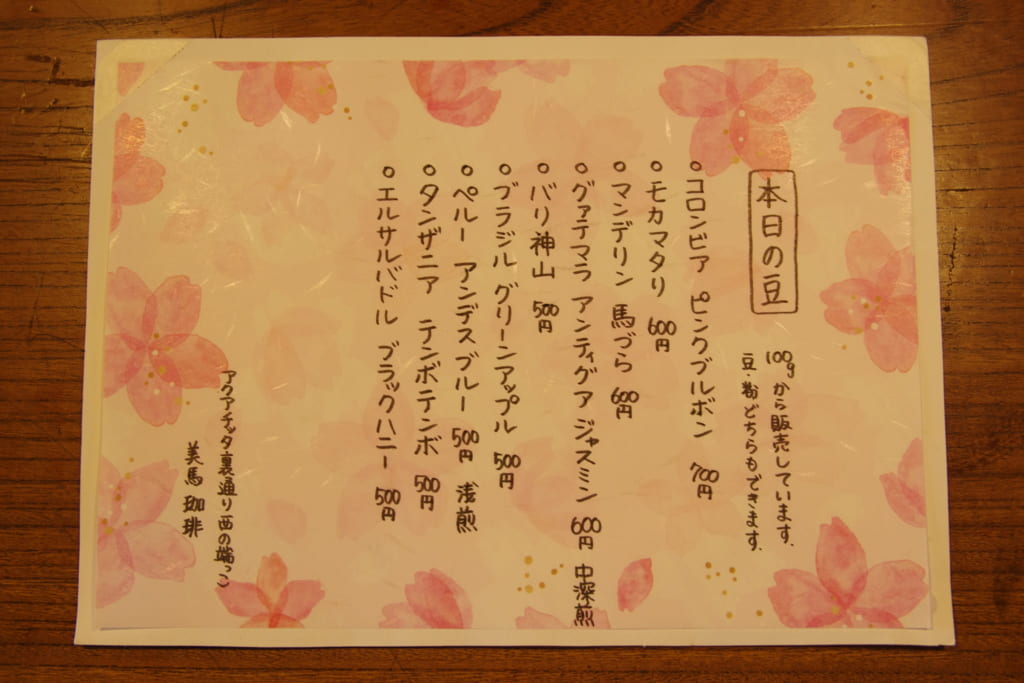 本日の豆
100gから販売しています.
豆・粉どちらもできます.
○コロンビア ピンクブルボン 700円
○モカマタリ 600円
○マンデリン 馬づら 600円
○グァテマラ アンティグア ジャスミン 600円 中深煎
○バリ神山 500円
○ブラジル グリーンアップル 500円
○ペルー アンデスブルー 500円 浅煎
○タンザニア テンボテンボ 500円
○エルサルバドル ブラックハニー 500円
アクアチッタ裏通り西の端っこ
美馬珈琲